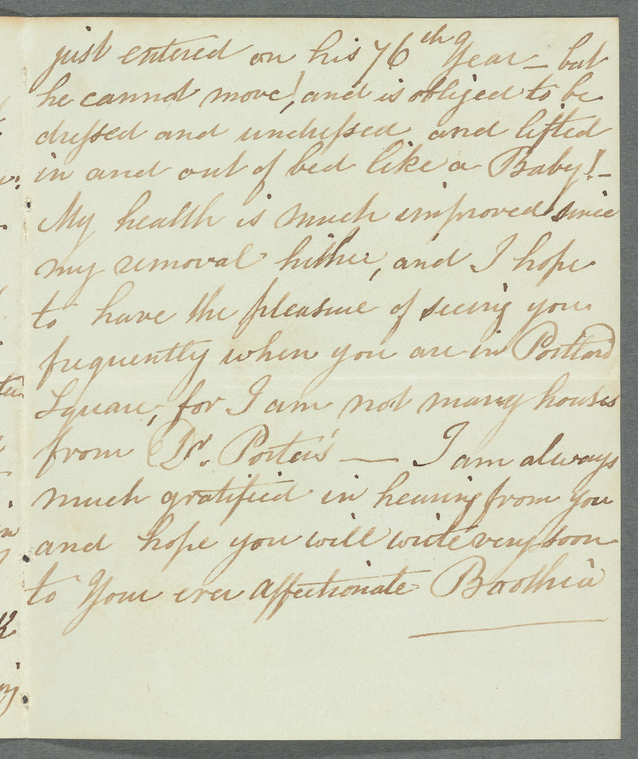 just entered on his 76th Year – but
he cannot move! and is obliged to be
dressed and undressed and lifted
in and out of bed like a Baby! –
My health is much improved since
my removal hither, and I hope
to have the pleasure of seeing you
frequently when you are in Portland
Square, for I am not many houses
from Dr. Porter's — I am always
much gratified in hearing from you
and hope you will write very soon
to Your ever affectionate